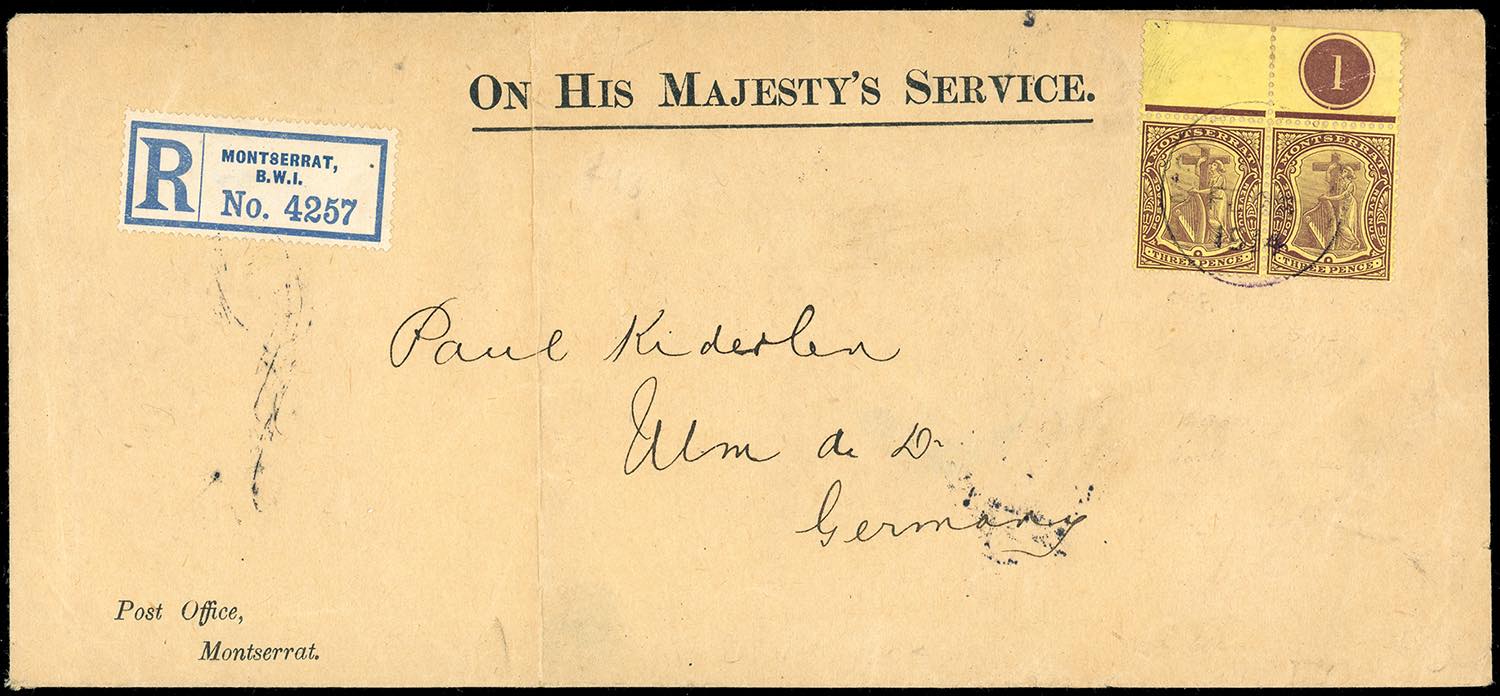 ON HIS MAJESTY'S SERVICE.
1
R
MONTSERRAT,
B.W.I.
No. 4257
MONTSERRAT
POSTAGE
REVENUE
THREE PENCE
MONTSERRAT
POSTAGE
REVENUE
THREE PENCE
Paul Kiderlen
Ulm a. D.
Germany
Post Office,
Montserrat.